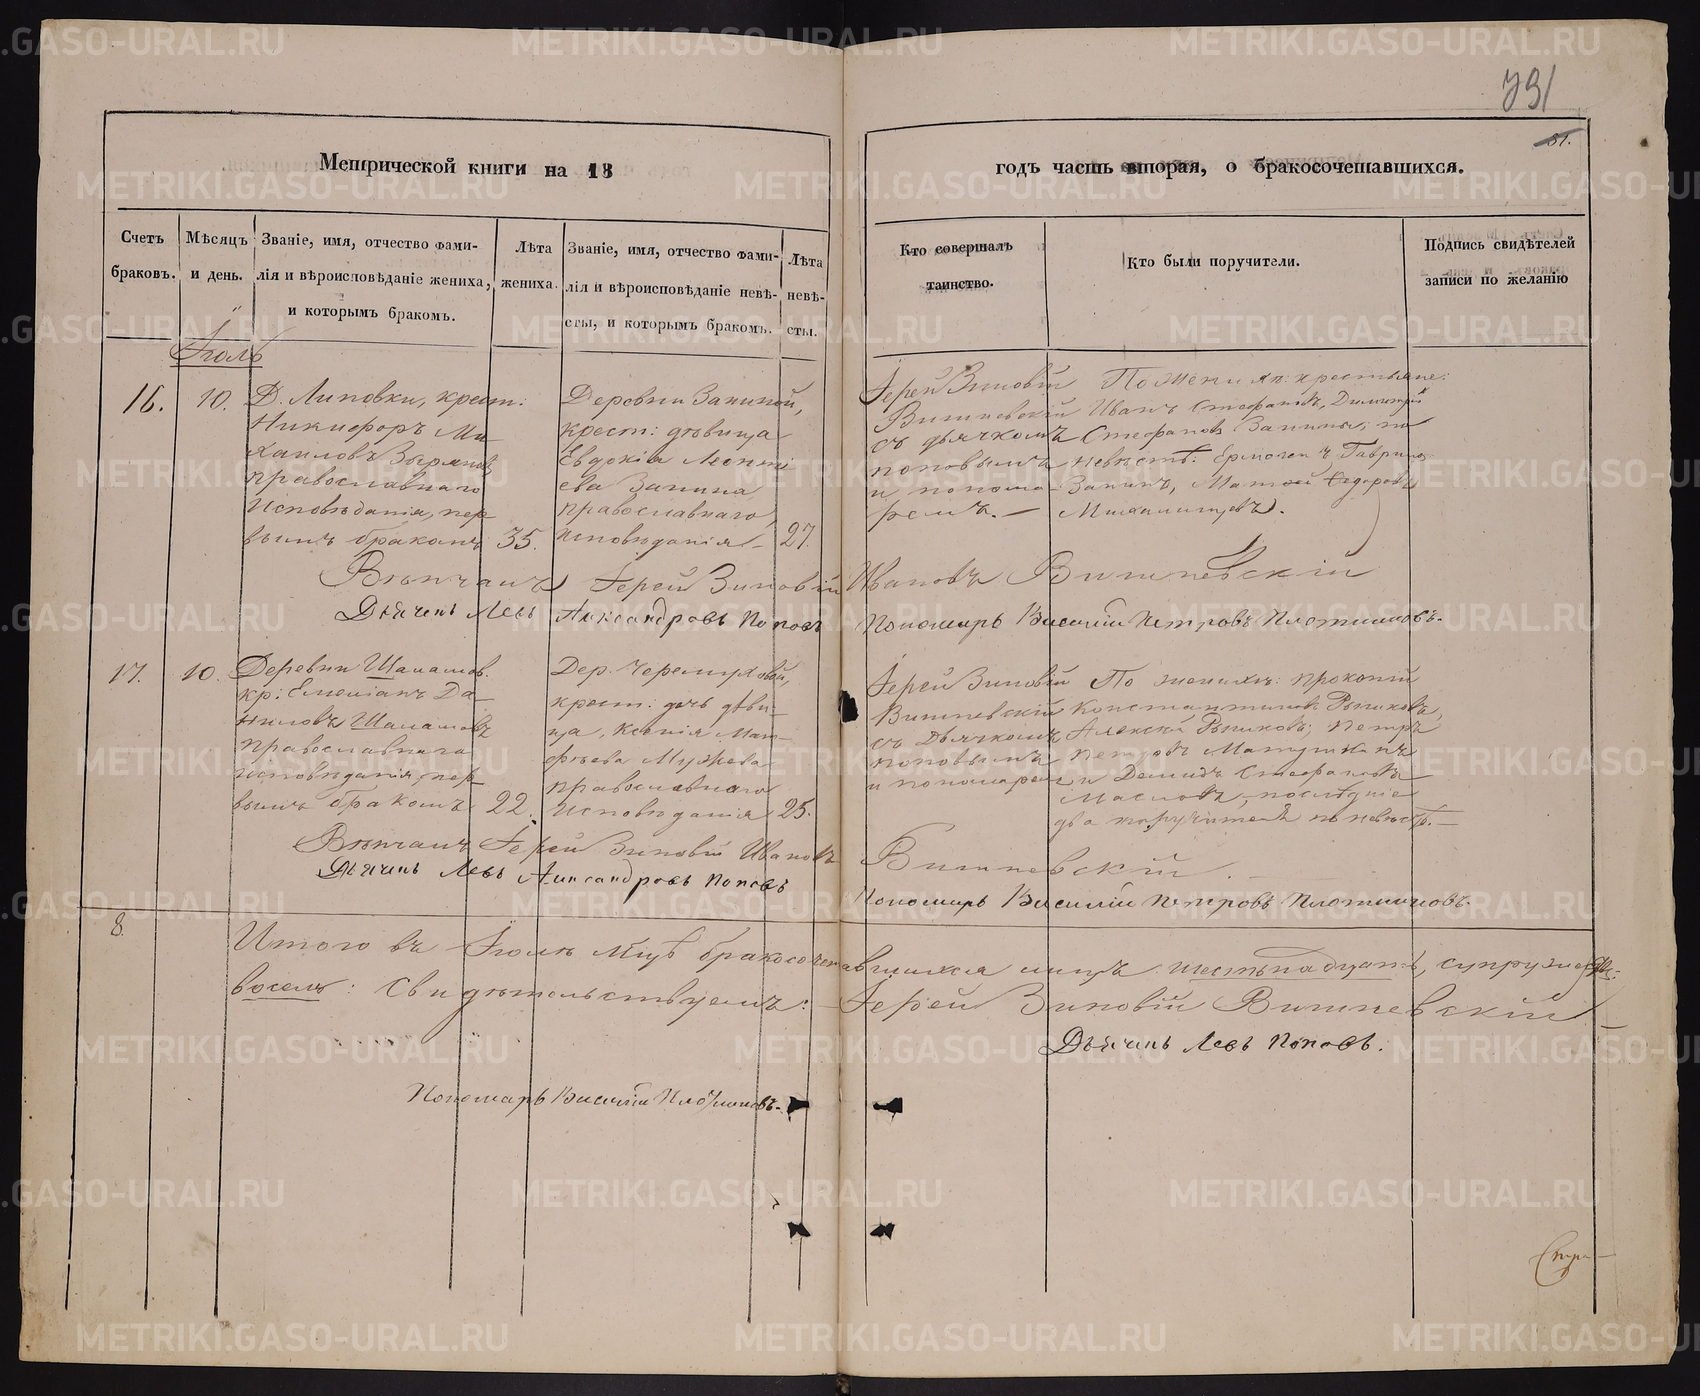 791
51.
Метрической книги на 18
годъ часть вторая, о бракосочетавшихся.
Счетъ браковъ.
Мѣсяцъ и день.
Званіе, имя, отчество фами-
лія и вѣроисповѣданіе жениха,
и которымъ бракомъ.
Лѣта жениха.
Званіе, имя, отчество фами-
лія и вѣроисповѣданіе невѣ-
сты, и которымъ бракомъ.
Лѣта невѣ-
сты.
Кто совершалъ
таинство.
Кто были поручители.
Подпись свидѣтелей
записи по желанію
Іюль
16.
10.
Д. Липовки, крест:
Никифоръ Ми
хаиловъ Зырянов
православнаго
исповѣданія, пер
вымъ бракомъ
35.
Деревни Заниной,
крест: дѣвица
Евдокія Леонті
ева Занина
православнаго
исповѣданія
27.
Іерей Зиновій
Вишневскій
съ дьячкомъ
Поповымъ
и понома-
ремъ.
По женихѣ: крестьяне:
Иванъ Стефановъ, Димитрій
Стефановъ Занины; по
невѣстѣ: Ермолай Гаврилов
Занинъ, Матѳей Ѳедоровъ
Вѣнчалъ Іерей Зиновій Ивановъ Вишневскій
Дьячекъ Левъ Александровъ Поповъ
Пономарь Василій Петровъ Плотниковъ.
17.
10.
Деревни Шаламов.
кр: Емеліанъ Да
ниловъ Шаламовъ
православнаго
исповѣданія, пер
вымъ бракомъ
22.
Дер. Черемуховой,
крест: дочь дѣви
ца, Ксенія Мат
ѳѣева Мужева
православнаго
исповѣданія
25.
Іерей Зиновій
Вишневскій
съ Дьячкомъ
Поповымъ
и пономарем
По женихѣ: Прокопій
Константиновъ
Алексѣй Петръ
Петровъ
и Демидъ Стефановъ
Масловъ, послѣдніе
два поручителя по невѣстѣ.
Вѣнчалъ Іерей Зиновій Ивановъ Вишневскій.
Дьячекъ Левъ Александровъ Поповъ
Пономарь Василій Петровъ Плотниковъ.
8.
Итого въ Іюлѣ мцѣ бракосочетавшихся лицъ шестьнадцать, супружествъ
восемь: Свидѣтельствуемъ: Іерей Зиновій Вишневскій
Дьячекъ Левъ Поповъ.
Пономарь Василій Плотниковъ.
METRIKI.GASO-URAL.RU